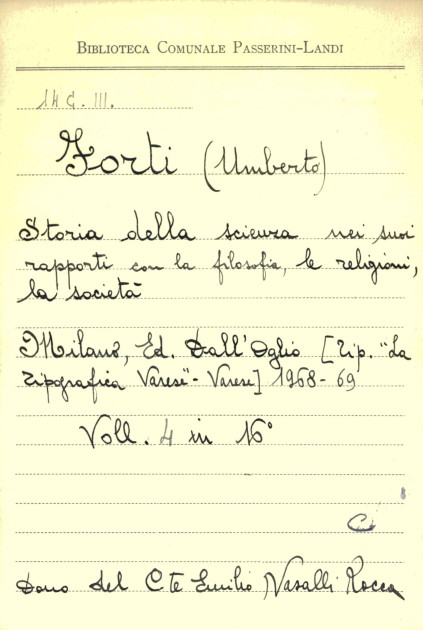 BIBLIOTECA COMUNALE PASSERINI-LANDI
14 C. III.
Forti (Umberto)
Storia della scienza nei suoi
rapporti con la filosofia, le religioni,
la società
Milano, Ed. Dall'Oglio [Tip. "La
Tipografica Varese" - Varese] 1968-69
Voll. 4 in 16°
Dono del Cte Emilio Nasalli Rocca